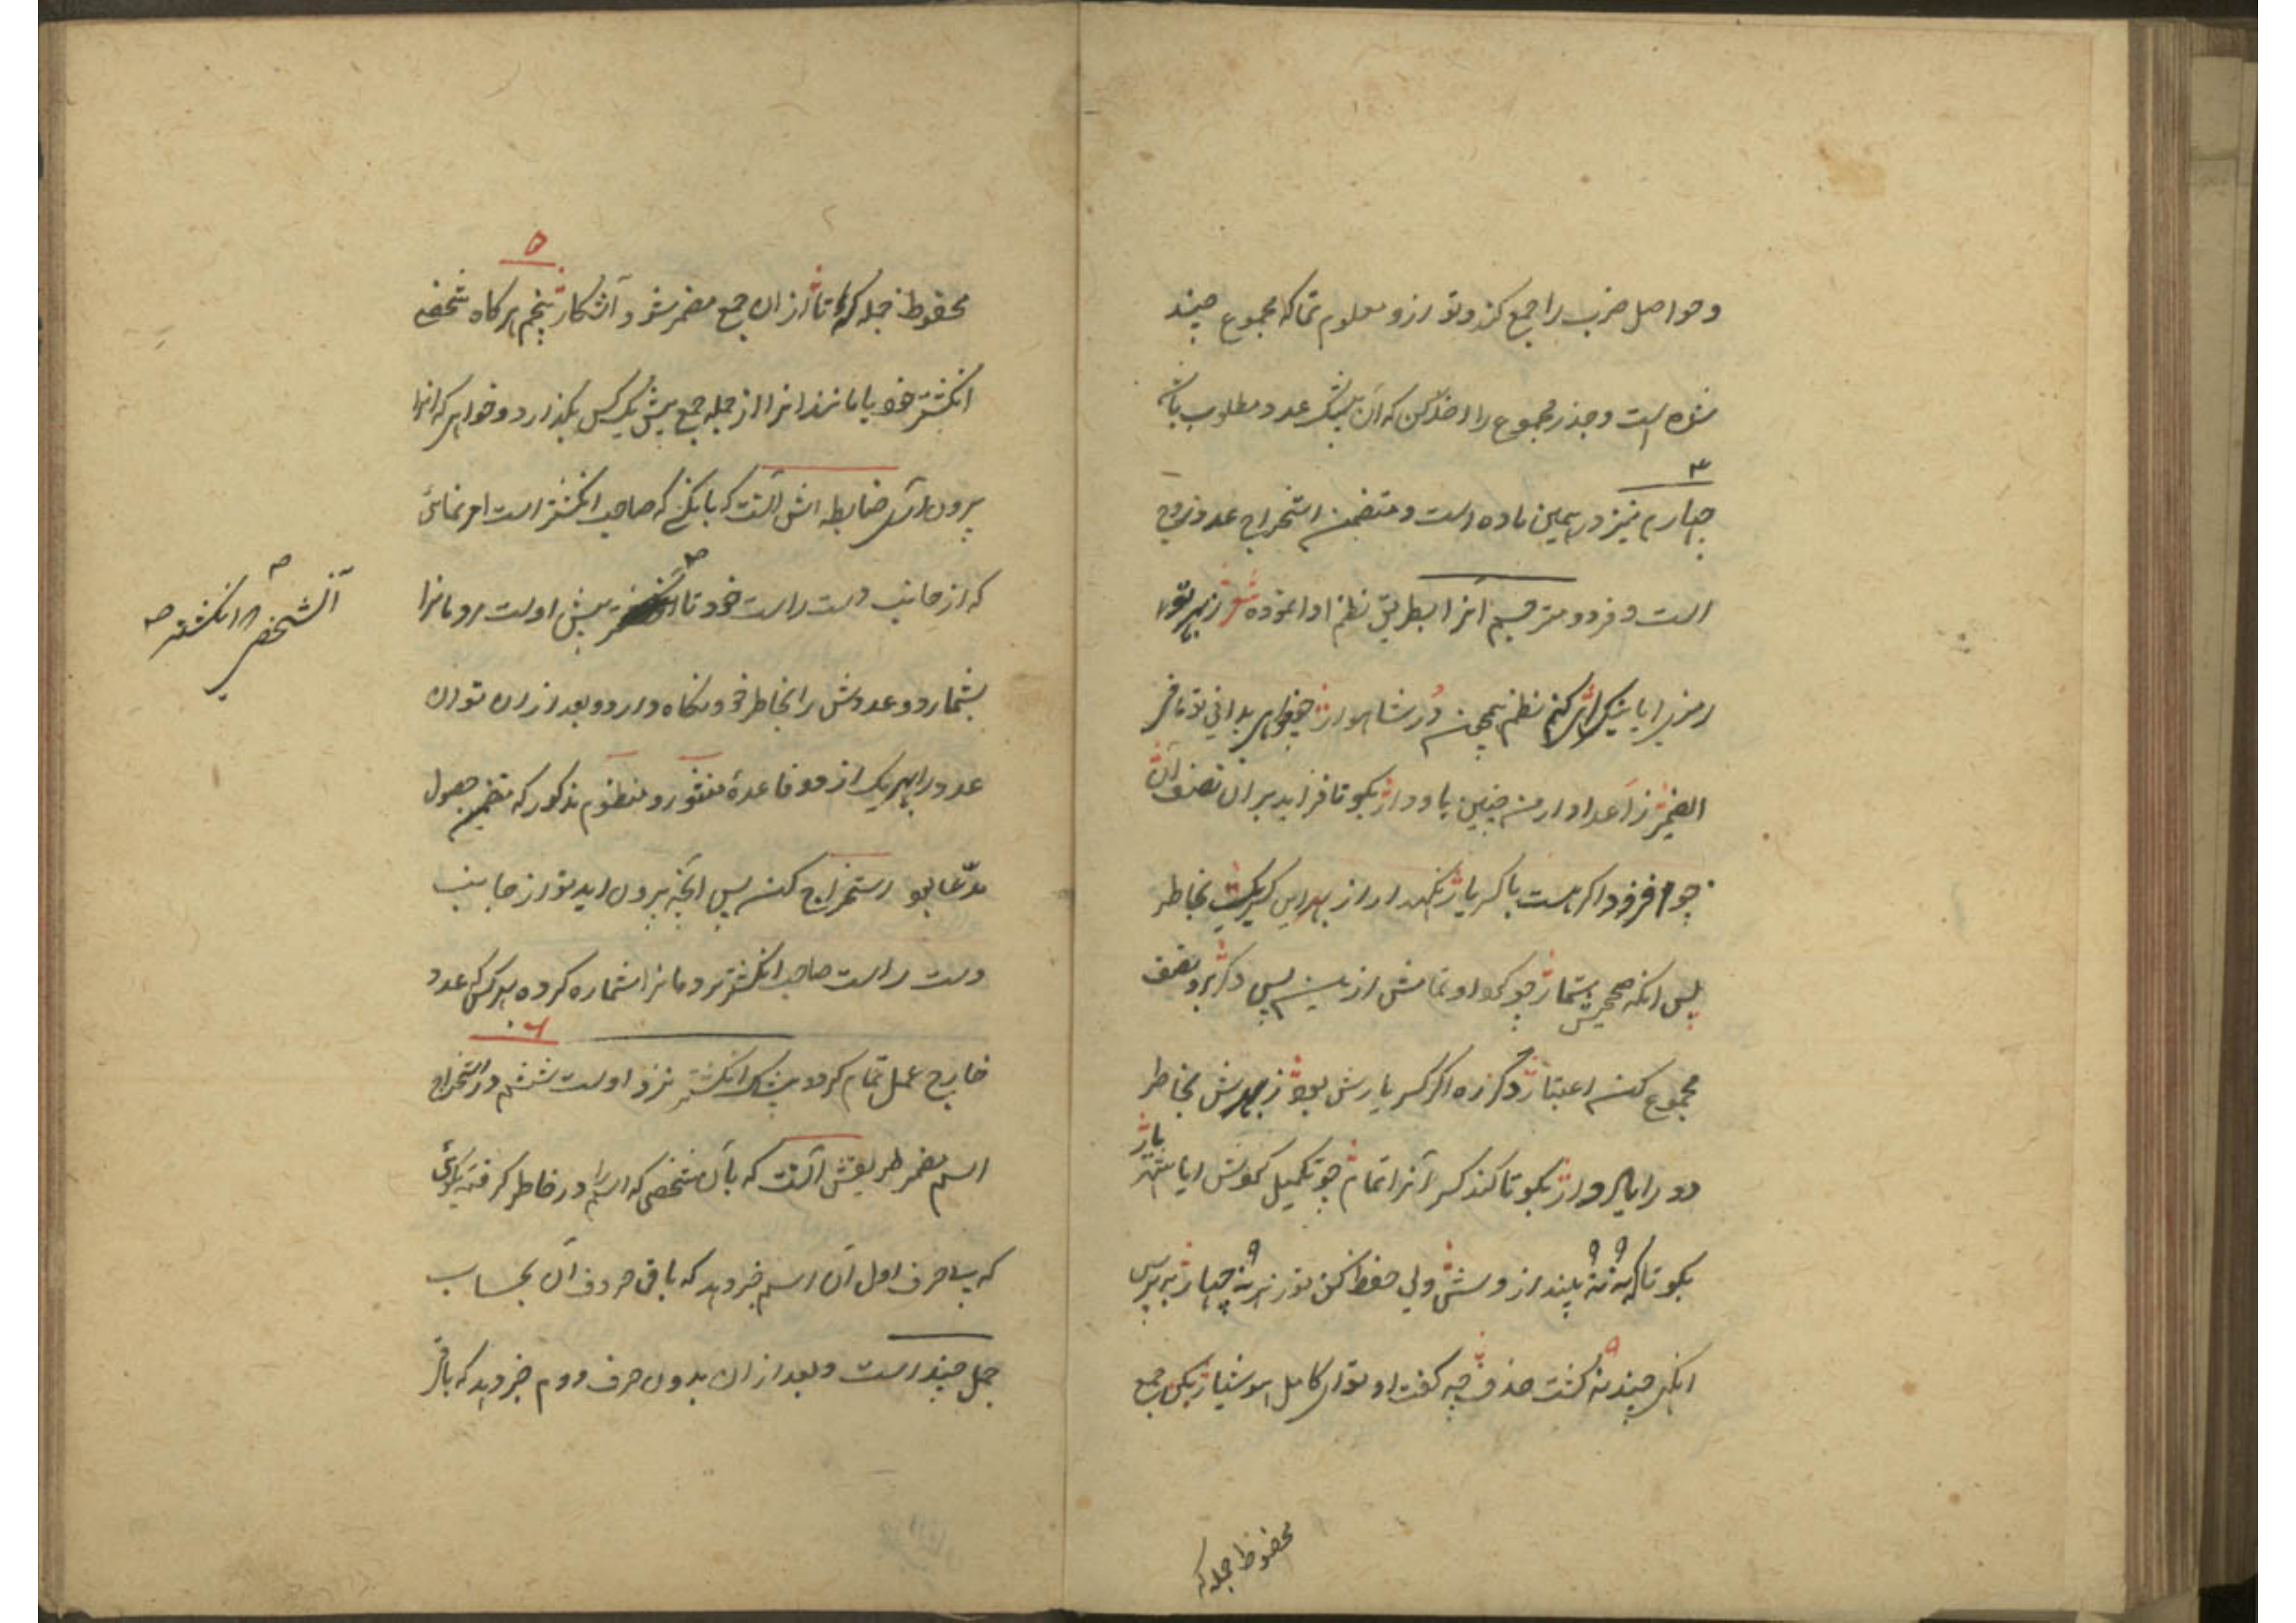 و حواصل ضرب را جمع کند و تو ازو معلوم نما که مجموع چند
شده است و جذر مجموع را اخذ کن که آن بیشک عدد مطلوب باشد
۴
چهارم نیز در همین ماده است و متضمن استخراج عدد زوج
است و فرد و مترقیم آنرا بطریق نظم ادا نموده شعر از بهر تو
رمزی را با نیک اثر کنم نظم همچون در شاهوار چه خواهی بدانی تو ما فی
الضمیر ز اعداد از من چنین یاد دار بگو تا فزاید بر آن نصف آن
چو افزود اگر هست با کسر یار نگهدار از بهر این کسر یک بخاطر
پس انگه صحیحش شمار چو کرد او تمامش ازین پس دگر برو نصف
مجموع کن اعتبار دگر ره اگر کسر یارش بود ز بهرش بخاطر
دو را یاد دار بگو تا کند کسر آنرا تمام چو تکمیل کردش ایا شهریار
بگو تا که نه نه بیندازد و شش ولی حفظ کن تو ز هر نه چهار بپرس
انکه چند نه گشت حذف چه گفت او تو ای کامل هوشیار بکن جمع
محفوظ جمله که
۵
محفوظ جمله که تا از آن جمع مضمر شود آشکار پنجم هرگاه شخصی
انگشتر خود یا مانند آنرا از جمله جمع پیش یک کس بگذارد و خواهی که آنرا
بیرون آری ضابطه‌اش آنست که بانکسی که صاحب انگشتر است امر نمائی
که از جانب دست راست خود تا پیش اوست مردمانرا
آنشخص انگشتر
بشمارد و عددش را بخاطر خود نگاه دارد و بعد از ان تو ان
عدد را بهر یک از دو قاعدهٔ منثور و منظوم مذکور که متضمن حصول
مدّعا بود استخراج کن پس آنچه بیرون اید تو از جانب
دست راست صاحب انگشتر مردمانرا شماره کرده بهر کس که عدد
۶
خارج عمل تمام گردد بیشک انگشتر نزد اوست ششم در استخراج
اسم مضمر طریقش آنست که بآن شخصی که اسم را در خاطر گرفته بگوئی
که بی حرف اول آن اسم خبر دهد که باقی حروف آن بحساب
جمل چند است و بعد از ان بدون حرف دوم خبر دهد که باقی